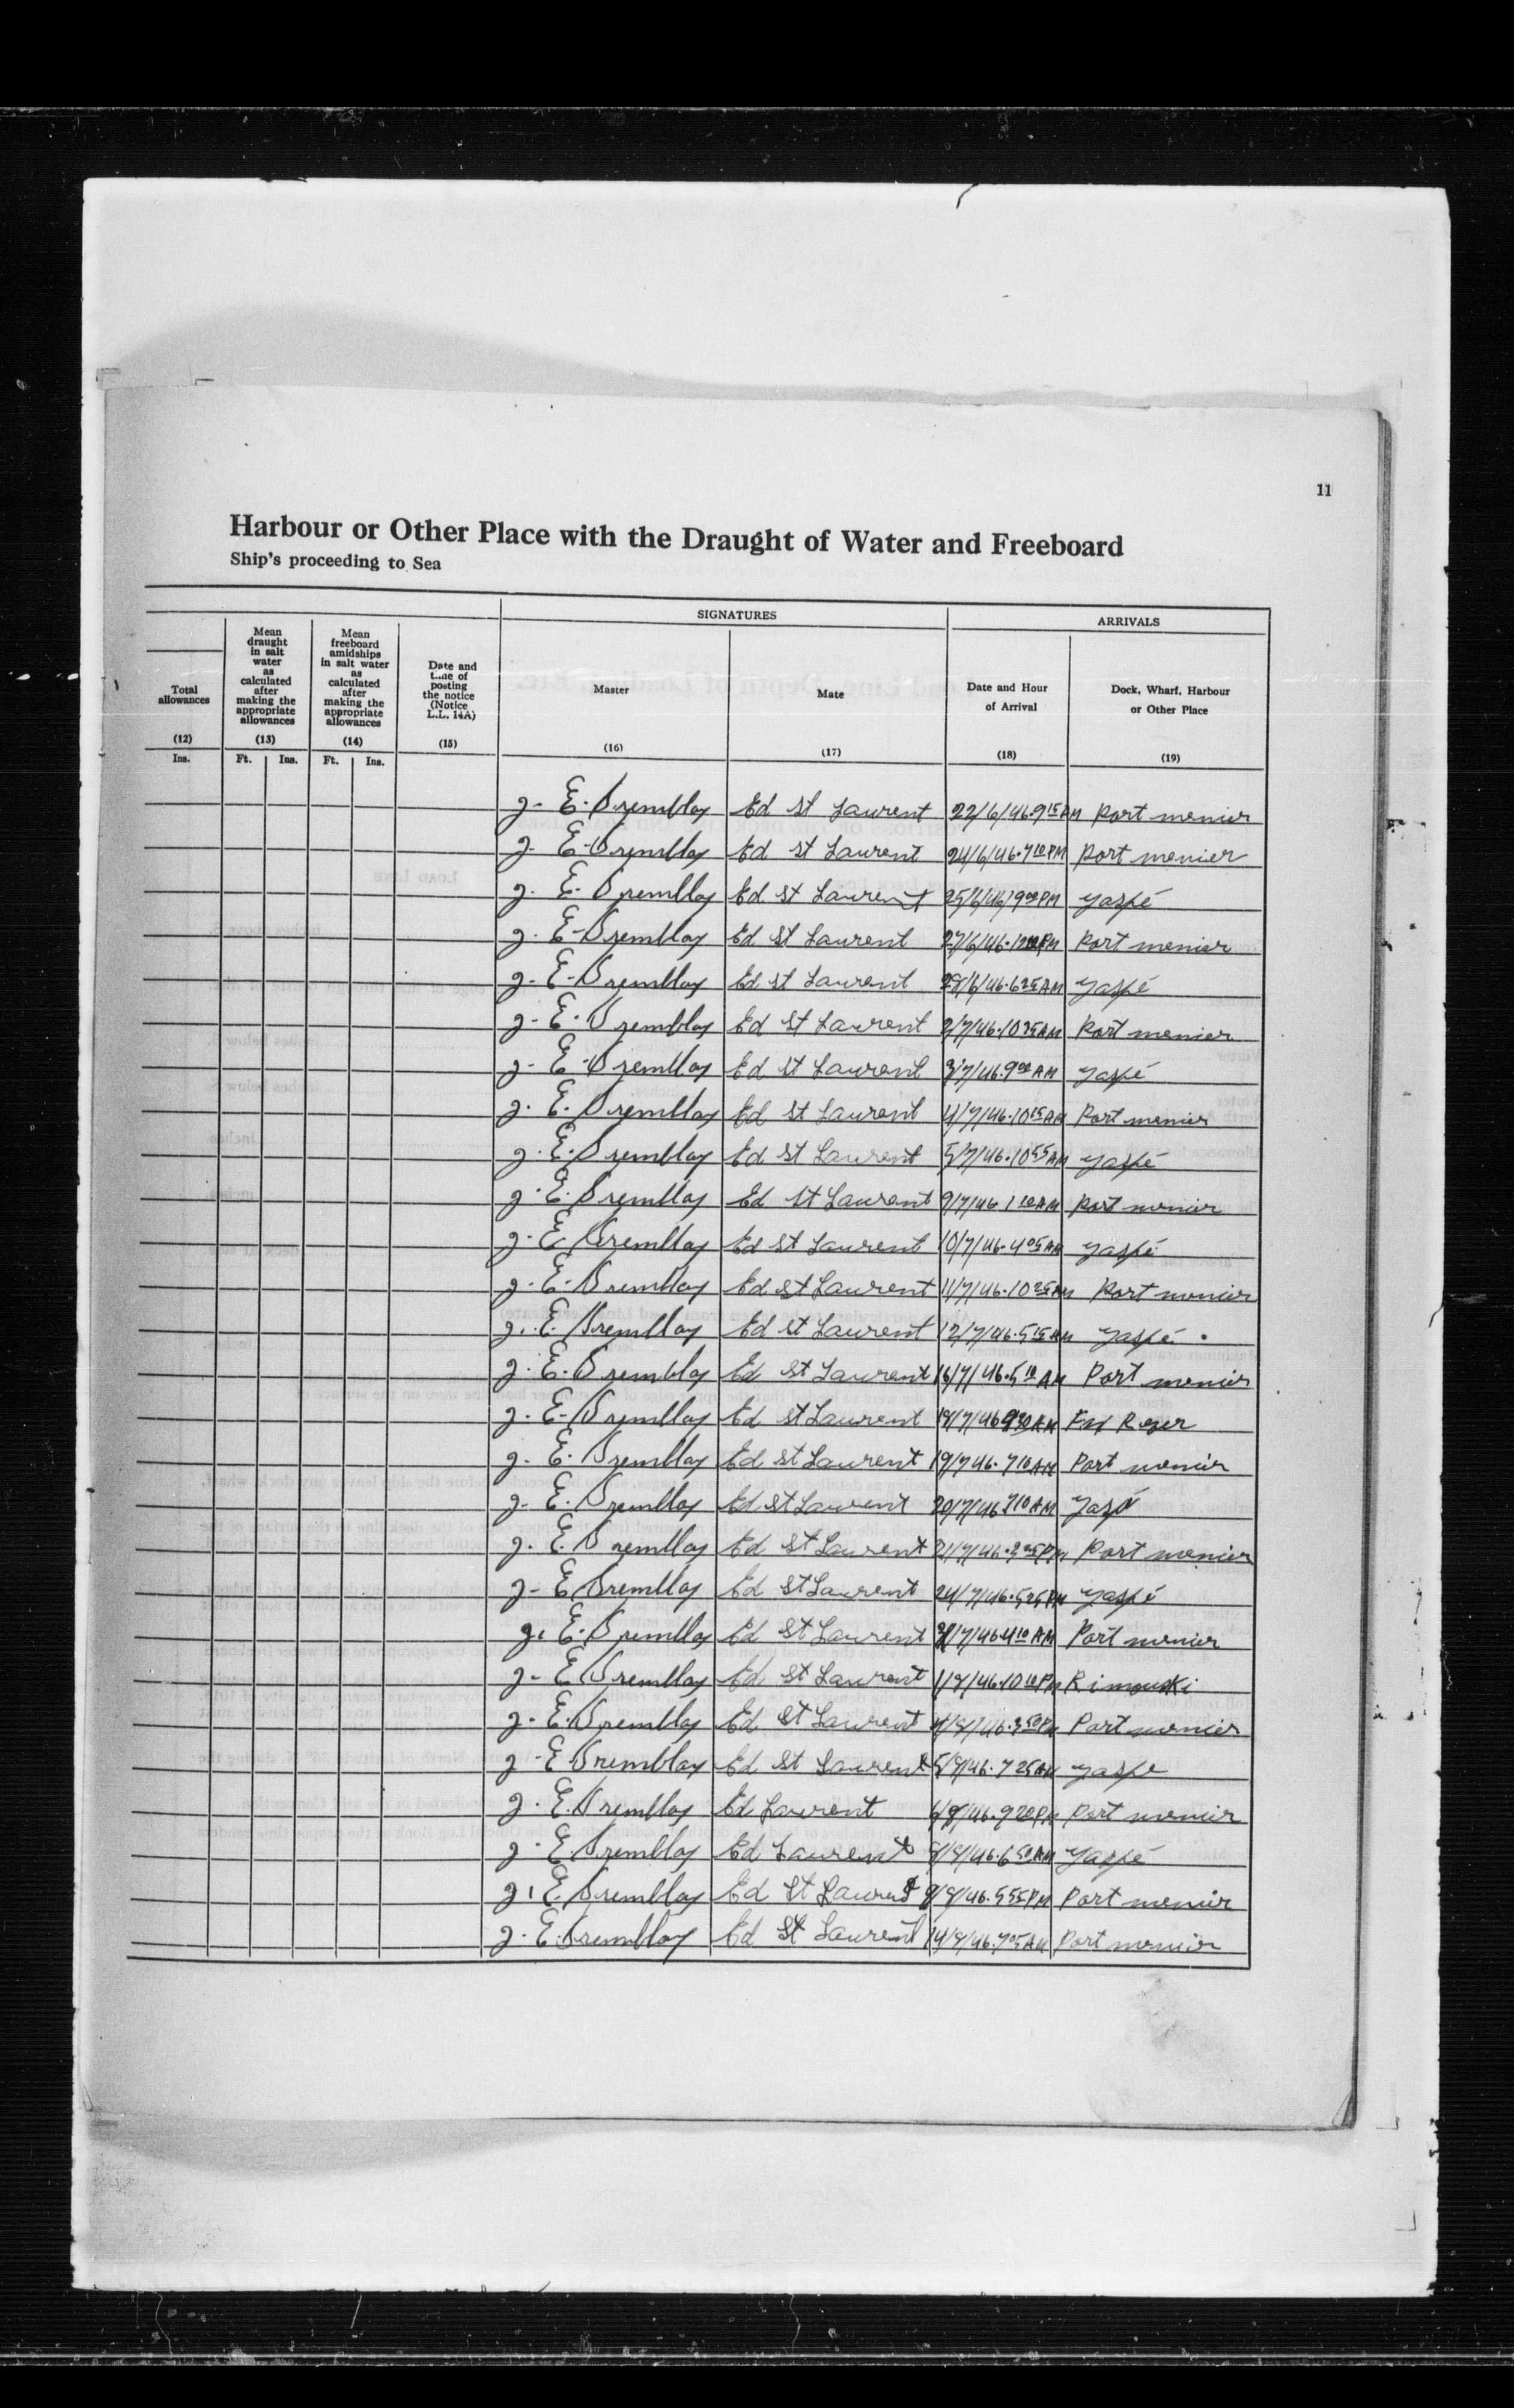 11
Harbour or Other Place with the Draught of Water and Freeboard
Ship's proceeding to Sea
SIGNATURES ARRIVALS
Total allowances
(12)
Ins.
Mean draught in salt water as calculated after making the appropriate allowances
(13)
Ft. Ins.
Mean freeboard amidships in salt water as calculated after making the appropriate allowances
(14)
Ft. Ins.
Date and time of posting the notice (Notice L.L. 14A)
(15)
Master
(16)
Mate
(17)
Date and Hour of Arrival
(18)
Dock, Wharf, Harbour or Other Place
(19)
J. E. Tremblay Ed St Laurent 22/6/46.9 15 AM Port menier
J. E. Tremblay Ed St Laurent 24/6/46.7 10 PM Port menier
J. E. Tremblay Ed St Laurent 25/6/46 9 00 PM Gaspé
J. E. Tremblay Ed St Laurent 27/6/46. Port menier
J. E. Tremblay Ed St Laurent 28/6/46. Gaspé
J. E. Tremblay Ed St Laurent 2/7/46. Port menier
J. E. Tremblay Ed St Laurent 3/7/46 9 00 AM Gaspé
J. E. Tremblay Ed St Laurent 4/7/46.10 15 AM Port menier
J. E. Tremblay Ed St Laurent 5/7/46.10 55 AM Gaspé
J. E. Tremblay Ed St Laurent 9/7/46 Port menier
J. E. Tremblay Ed St Laurent 10/7/46.4 05 AM Gaspé
J. E. Tremblay Ed St Laurent 11/7/46. Port menier
J. E. Tremblay Ed St Laurent 12/7/46.5 15 AM Gaspé.
J. E. Tremblay Ed St Laurent 16/7/46.5 10 AM Port menier
J. E. Tremblay Ed St Laurent 18/7/46 9 30 AM
J. E. Tremblay Ed St Laurent 19/7/46. 7 10 AM Port menier
J. E. Tremblay Ed St Laurent 20/7/46 7 10 AM
J. E. Tremblay Ed St Laurent 21/7/46. Port menier
J. E. Tremblay Ed St Laurent 24/7/46.5 25 PM Gaspé
J. E. Tremblay Ed St Laurent 4 10 AM Port menier
J. E. Tremblay Ed St Laurent 1/8/46.10 10 PM Rimouski
J. E. Tremblay Ed St Laurent 4/8/46.3 50 PM Port menier
J. E. Tremblay Ed St Laurent 5/8/46. 7 25 AM Gaspe
J. E. Tremblay Ed Laurent 6/8/46.9 20 PM Port menier
J. E. Tremblay Ed Laurent 8/8/46.6 50 AM Gaspé
J. E. Tremblay Ed St Laurent 9/8/46. 5 55 PM Port menier
J. E. Tremblay Ed St Laurent 14/8/46.7 05 AM Port menier